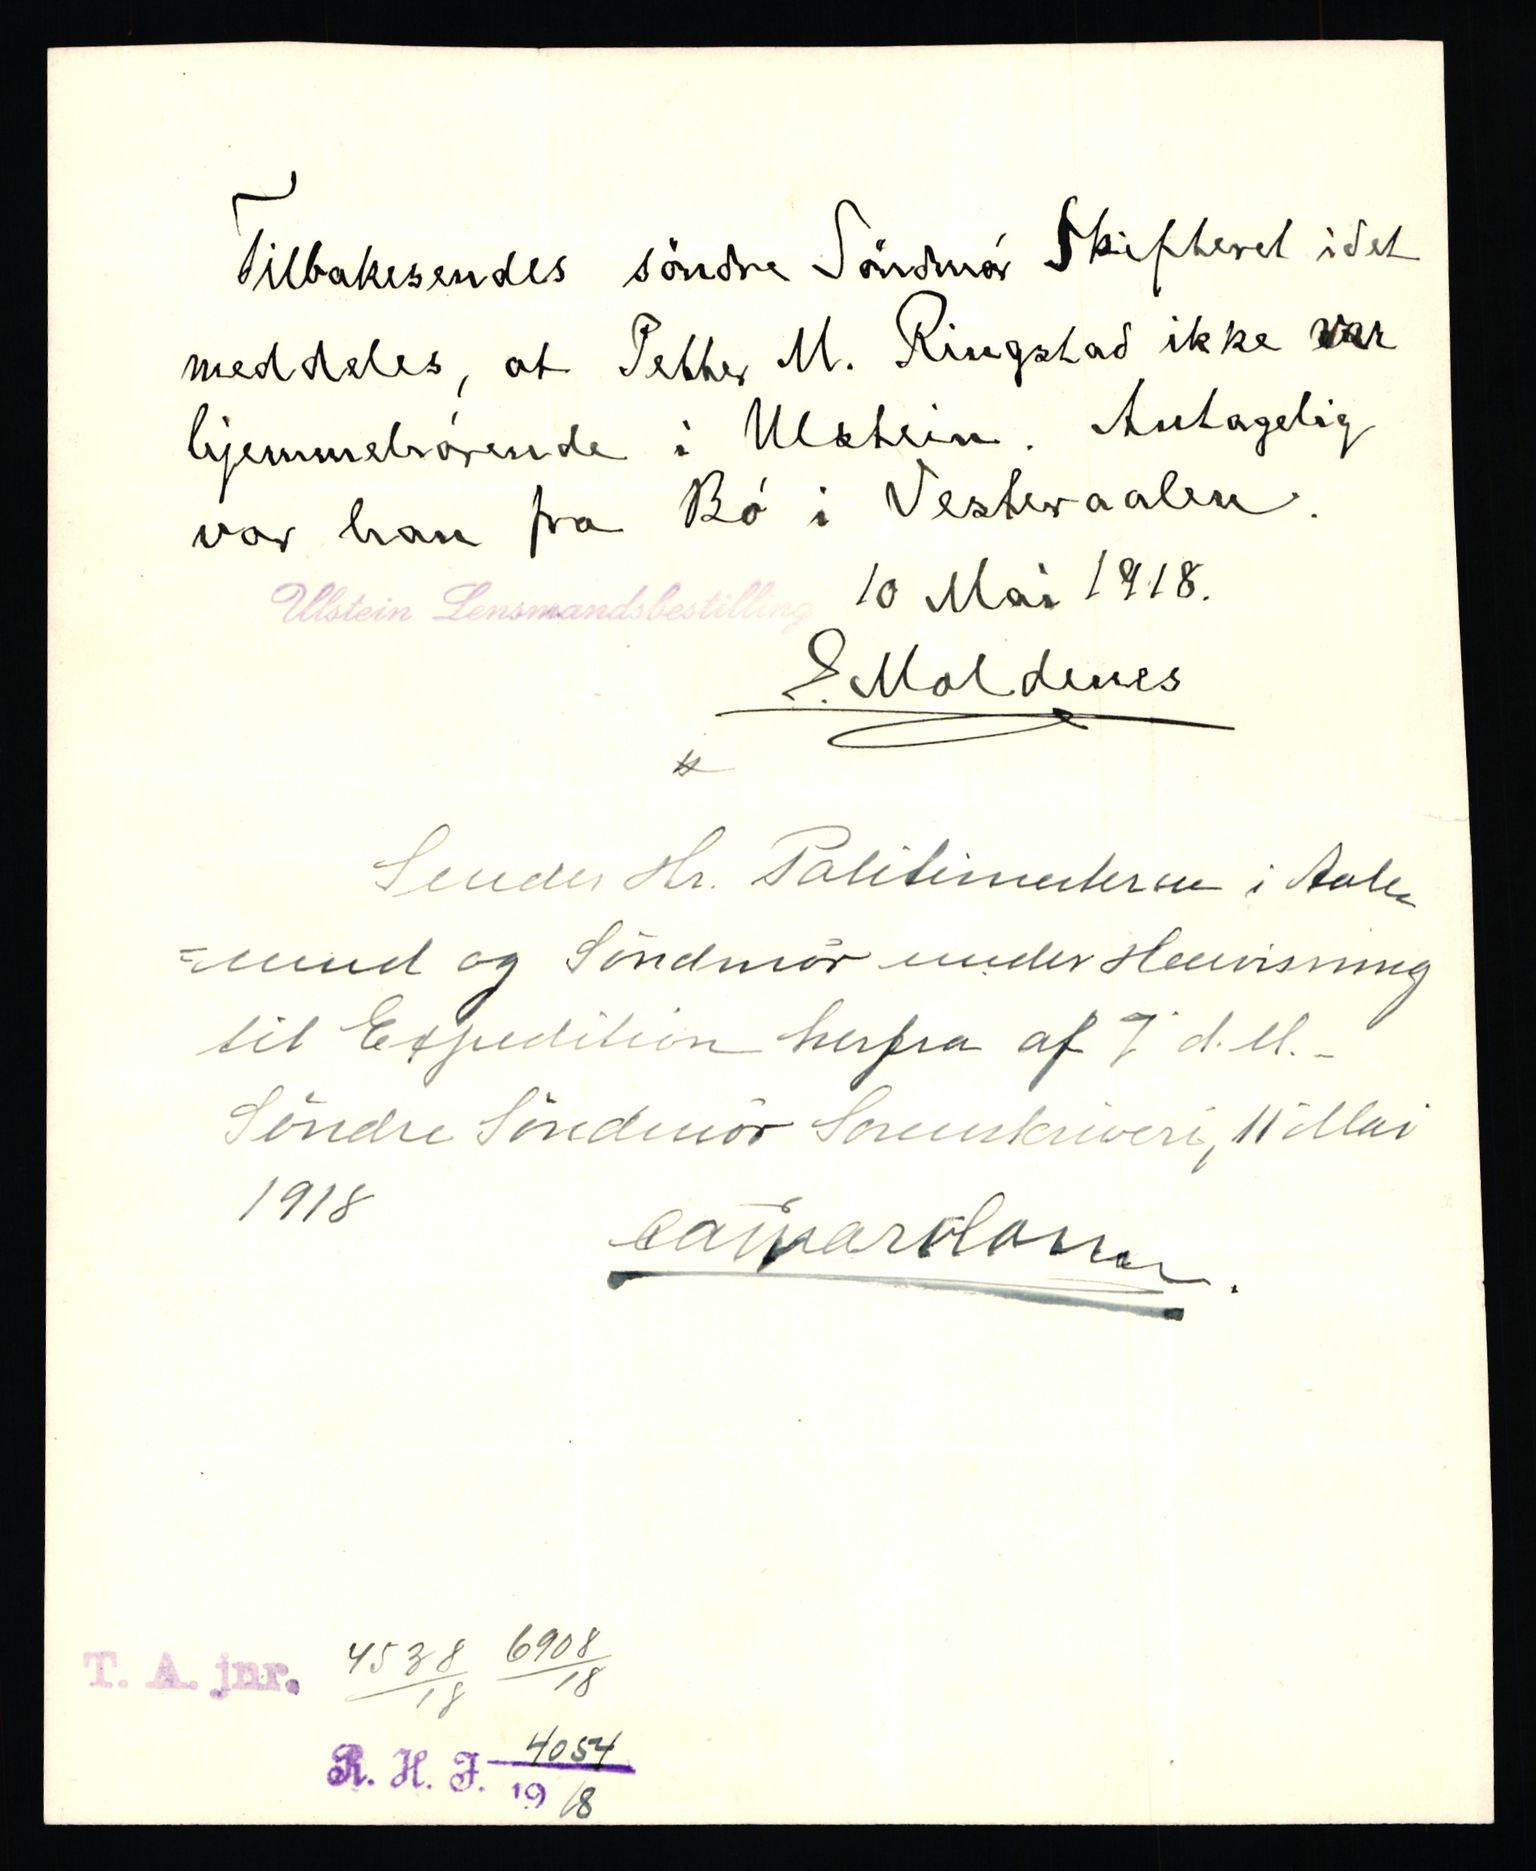 Tilbakesendes söndre Söndmör Skifteret idet
meddeles, at Petter M. Ringstad ikke var
hjemmehörende i Ulstein. Antagelig
var han fra Bö i Vesteraalen.
Ulstein Lensmandsbestilling 10 Mai 1918.
E. Moldenes
Sendes Hr. Politimesteren i Aale
=sund og Söndmör under Henvisning
til Expedition herfra af 7' d. M. -
Söndre Söndmör Sorenskriveri, 11' Mai
1918
T. A. jnr. 4538/18 6908/18
R. H. J. 4054
1918